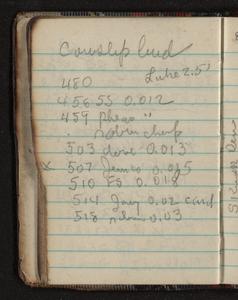 Cowslip bud
Luke 2.51
480
456 SS 0.012
459 pheas "
robin cheep
503 dove 0.013
x 507 0.015
510 FS 0.018
514 Jay 0.02 card
518 0.03